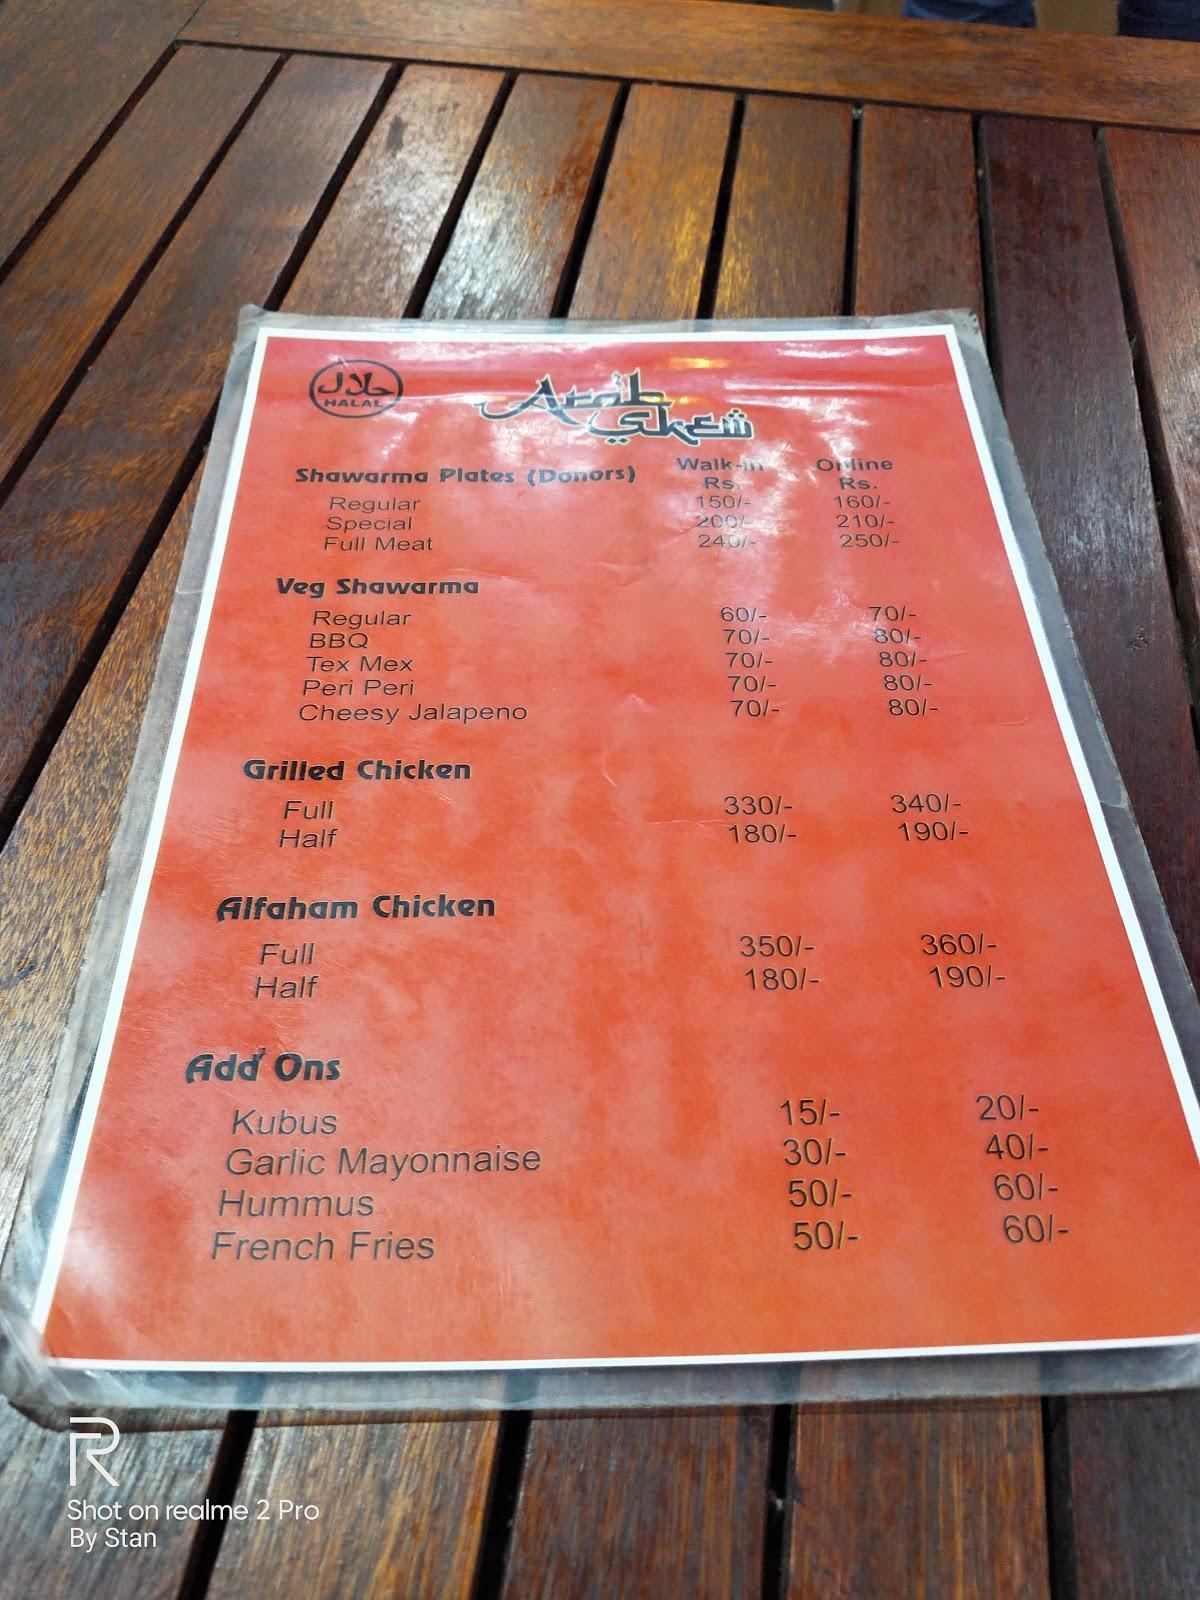 حلال
HALAL
Arab
Skew
Walk-in Online
Shawarma Plates (Donors) Rs. Rs.
Regular 150/- 160/-
Special 200/- 210/-
Full Meat 240/- 250/-
Veg Shawarma
Regular 60/- 70/-
BBQ 70/- 80/-
Tex Mex 70/- 80/-
Peri Peri 70/- 80/-
Cheesy Jalapeno 70/- 80/-
Grilled Chicken
Full 330/- 340/-
Half 180/- 190/-
Alfaham Chicken
Full 350/- 360/-
Half 180/- 190/-
Add Ons
Kubus 15/- 20/-
Garlic Mayonnaise 30/- 40/-
Hummus 50/- 60/-
French Fries 50/- 60/-
R
Shot on realme 2 Pro
By Stan